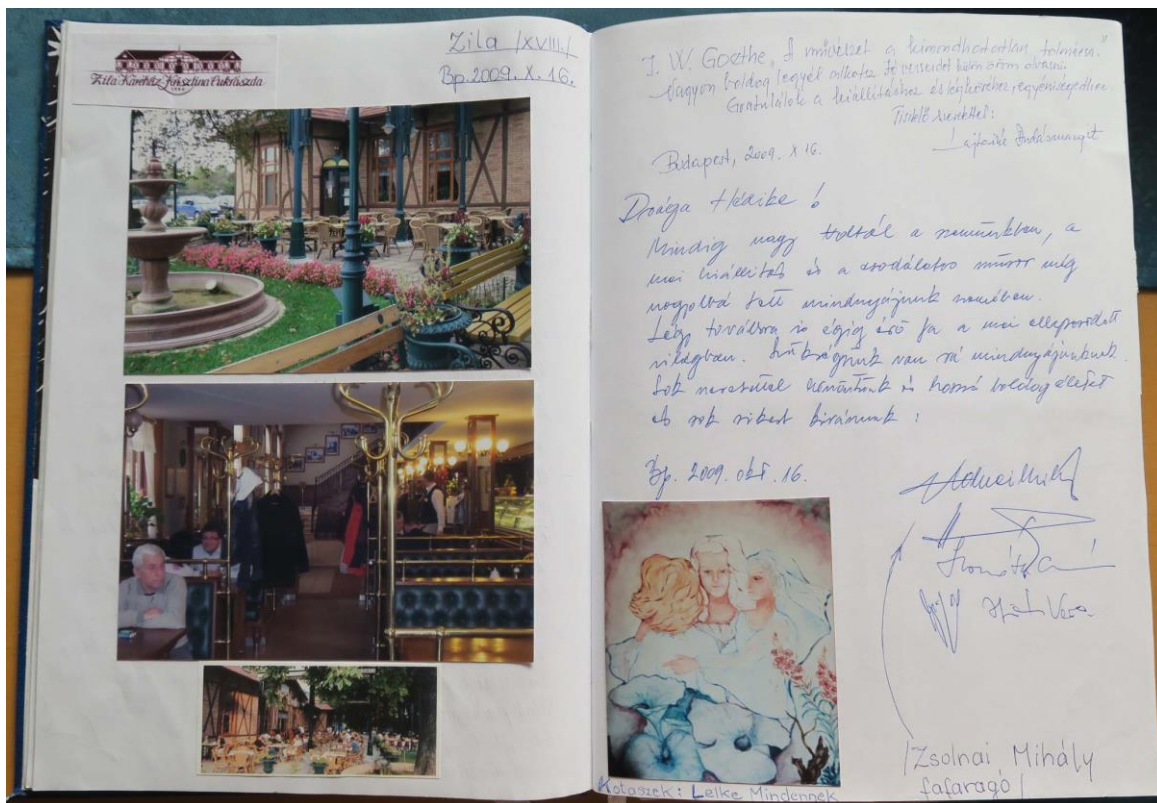 Zila Kávéház Krisztina Cukrászda
Zila /XVIII./
Bp. 2009. X. 16.
J. W. Goethe „A művészet a kimondhatatlan tolmácsa."
Nagyon boldog legyél
Gratulálok a kiállításhoz és
Tisztelő szeretettel:
Budapest, 2009. X 16.
Drága Hédike!
Mindig nagy voltál a szemünkben, a
mai kiállítás és a csodálatos műsor még
nagyobbá tett mindnyájunk szemében.
Légy továbbra is égig érő fa a mai
világban. Szükségünk van rá mindnyájunknak.
Sok szeretettel köszöntünk és hosszú boldog életet
és sok sikert kívánunk:
Bp. 2009. okt. 16.
Vera
/Zsolnai Mihály
fafaragó/
Kotaszek: Lelke Mindennek